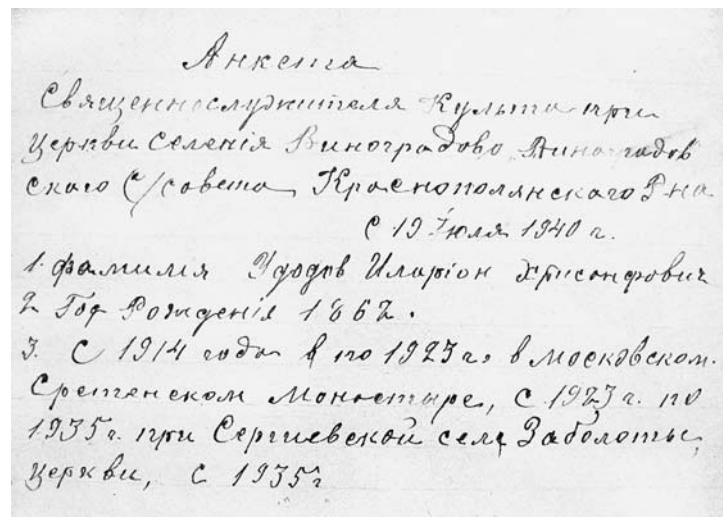 Анкета
Священнослужителя Культа при
церкви Селенія Виноградово Виноградов
скаго С/совета Краснополянскаго Р-на
С 19 Июля 1940 г.
1. фамилия Удодов Иларіон Хрисанфович
2. Год Рожденія 1862.
3. С 1914 года в по 1923 г. в московском.
Сретенском Монастыре, с 1923 г. по
1935 г. при Сергиевской села Заболотье,
церкви, с 1935 г